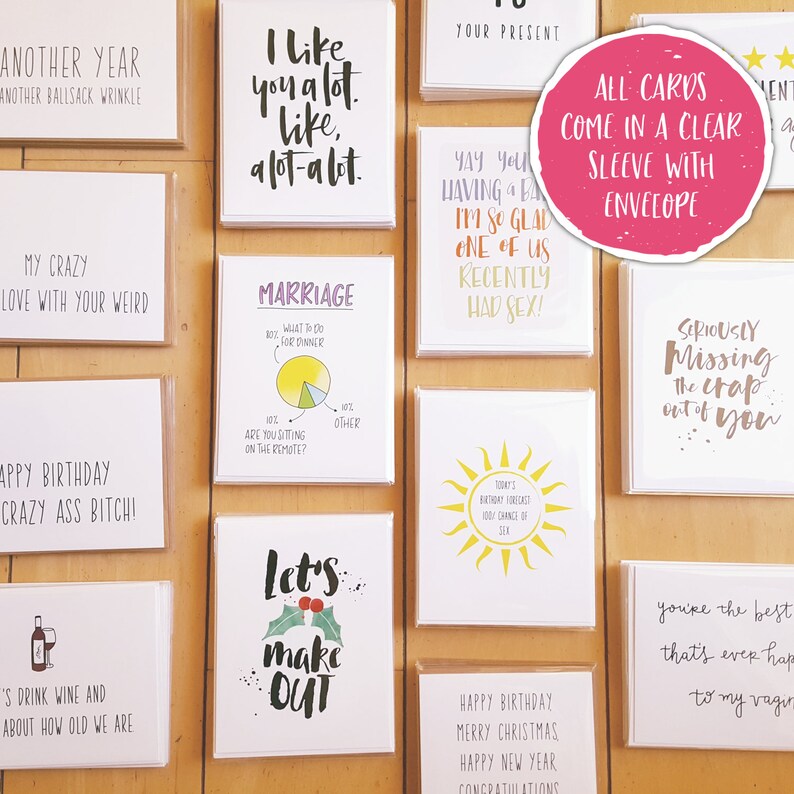 ANOTHER YEAR
ANOTHER BALLSACK WRINKLE
MY CRAZY
LOVE WITH YOUR WEIRD
HAPPY BIRTHDAY
CRAZY ASS BITCH!
DRINK WINE AND
ABOUT HOW OLD WE ARE.
I like
you a lot.
like,
a lot-a lot.
MARRIAGE
80%
WHAT TO DO
FOR DINNER
10%
ARE YOU SITTING
ON THE REMOTE?
10%
OTHER
Let's
make
OUT
YOUR PRESENT.
YAY YOU'RE
HAVING a
I'M SO GLAD
ONE OF US
RECENTLY
HAD SEX!
TODAY'S
BIRTHDAY FORECAST
100% CHANCE OF
SEX
HAPPY BIRTHDAY,
MERRY CHRISTMAS,
HAPPY NEW YEAR,
CONGRATULATIONS
ALL CARDS
COME IN A CLEAR
SLEEVE WITH
ENVELOPE
SERIOUSLY
Missing
the crap
out of you
you're the best
that's ever
to my